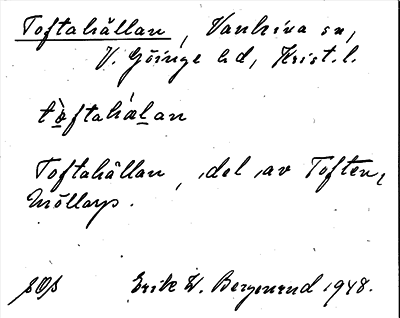 Toftahällan, Vankiva sn,
V. Göinge hd, Krist. l.
tòftahàlan
Toftahällan, del av Toften,
Möllarp.
Erik W. Bergenrud 1948.